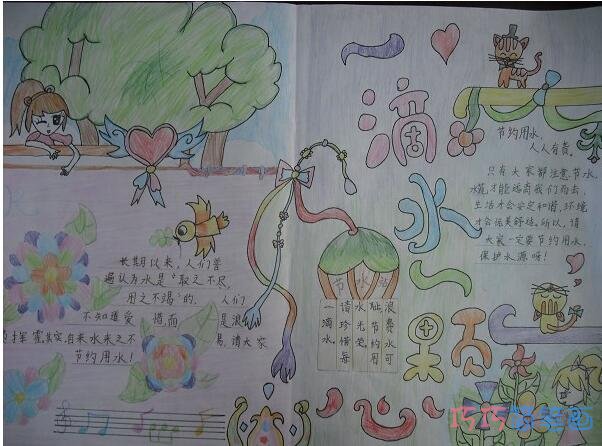 一滴水一颗心
长期以来，人们普
遍认为水是“取之不尽，
用之不竭”的。人们
不知道爱 惜而 是浪
费挥霍,其实,自来水来之不 易,请大家
节约用水！
节水
浪费水可
耻节约用
水光荣。
请珍惜每
一滴水。
节约用水，
人人有责。
只有大家都注意节水，
水荒才能远离我们而去，
生活才会安定和谐，环境
才会优美舒适。所以，请
大家一定要节约用水，
保护水源呀！
巧巧简笔画